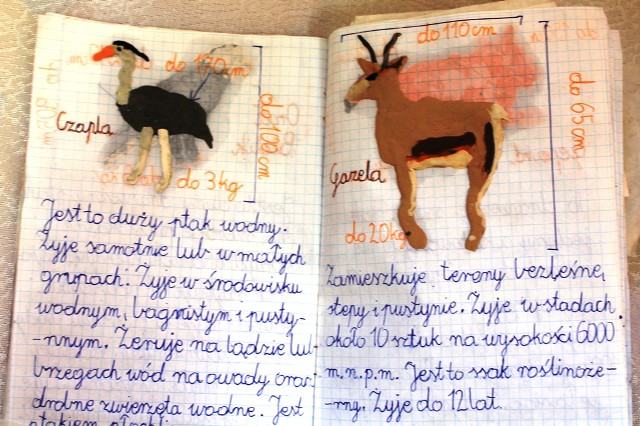 do 170cm
do 100cm
Czapla
do 3kg
Jest to duży ptak wodny.
Żyje samotnie lub w małych
grupach. Żyje w środowisku
wodnym, bagnistym i pusty-
-nnym. Żeruje na lądzie lub
brzegach wód na owady oraz
drobne zwierzęta wodne. Jest
do 110cm
do 65cm
Gazela
do 20kg
Zamieszkuje tereny bezleśne,
stepy i pustynie. Żyje w stadach
około 10 sztuk na wysokości 6000
m.n.p.m. Jest to ssak roślinoże-
-rny. Żyje do 12 lat.